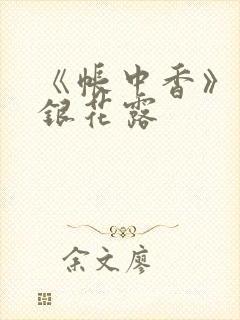 《帐中香》
银花露
余文廖